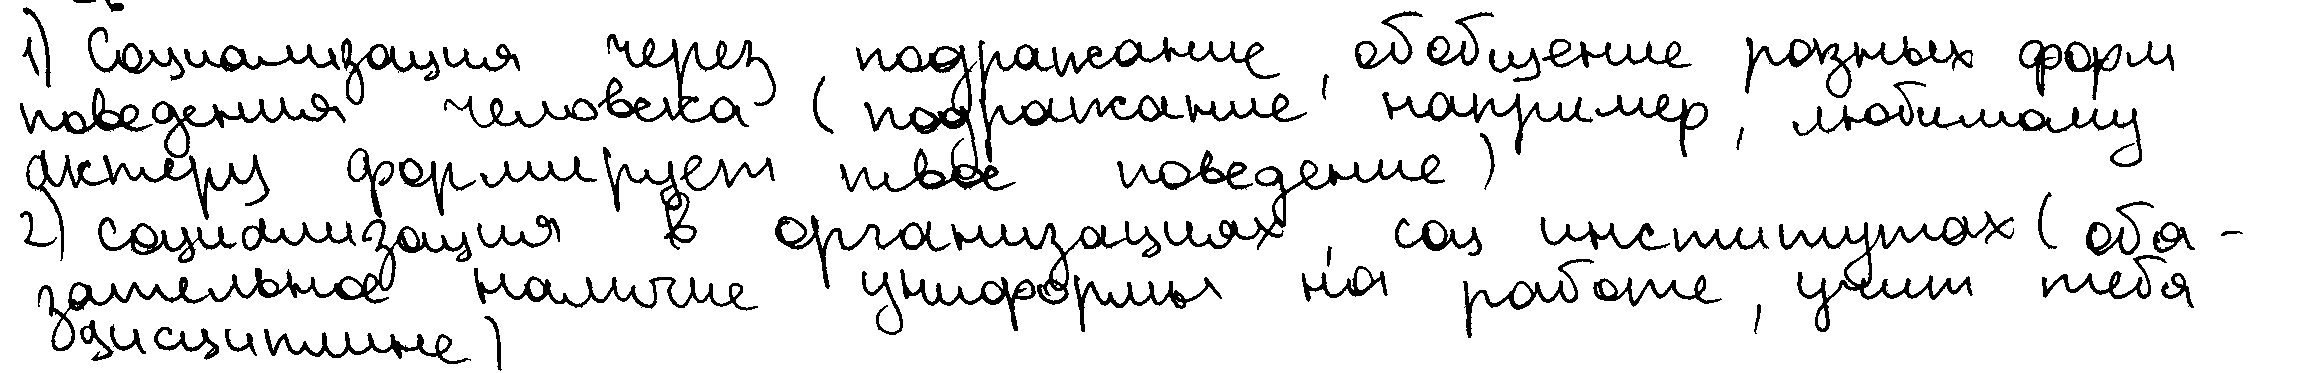 1) Социализация через подражание, обобщение разных форм
поведения человека (подражание например, любимому
актеру формирует твое поведение)
2) социализация в организациях, соц институтах (обя-
зательное наличие униформы на работе, учит тебя
дисциплине)